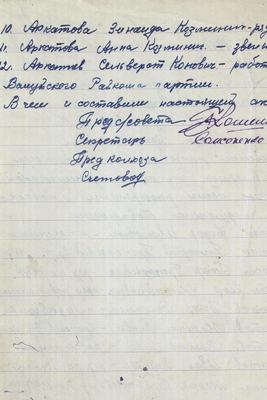 10. Аркатова Зинаида Кузминич-
11. Аркатова Анна Кузминич. – звен
12. Аркатов Сельверст Конович – работ
Валуйского Райкома партии.
В чем и составили настоящий ак
Пред с/совета
Секретарь
Пред колхоза
Счетовод